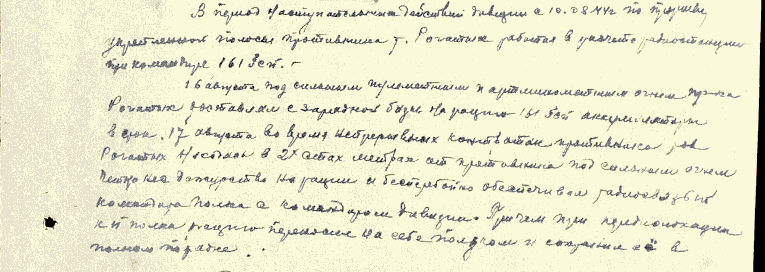 В период наступательных действий дивизии с 10.08.44г по прорыву
укрепленной полосы противника т. Рогатых работая в расчете радиостанции
при командире 161 Зсп.
16 августа под сильным пулеметным и артминометным огнем врага
Рогатых доставлял с зарядной базы на рацию 161 Зсп аккумуляторы
в срок. 17 августа во время непрерывных контратак противника
Рогатых находясь в 2х стах метрах от противника под сильным огнем
нес дежурство на рации и бесперебойно обеспечивал радиосвязью
командира полка с командиром дивизии. Причем при передислокации
КП полка рацию переносил на себе ползком и сохранил её в
полном порядке.